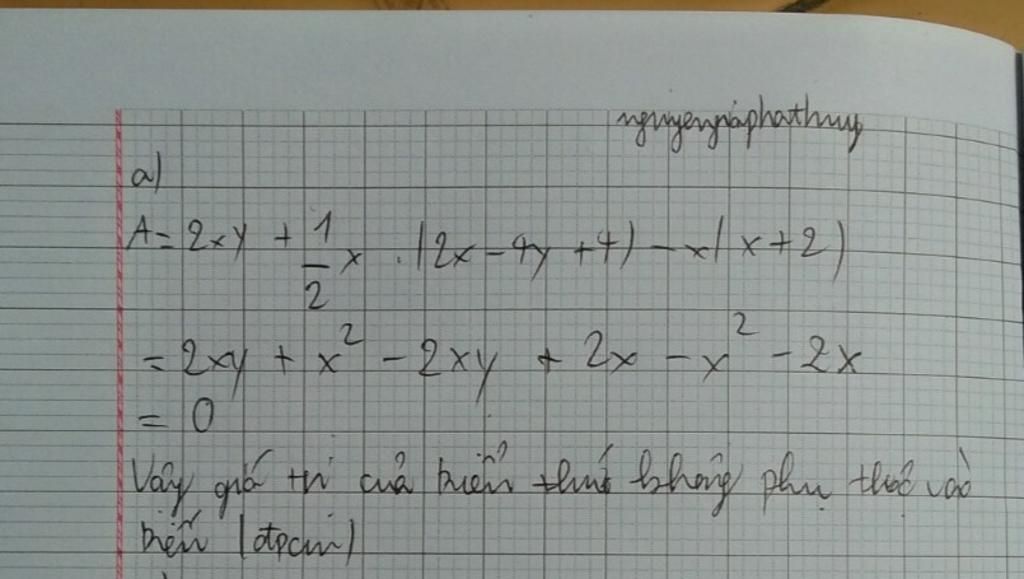 nguyengiaphathuy
a)
A = 2xy + 1/2 x . (2x - 4y + 4) - x(x + 2)
= 2xy + x² - 2xy + 2x - x² - 2x
= 0
Vậy giá trị của biểu thức không phụ thuộc vào
biến (đpcm)